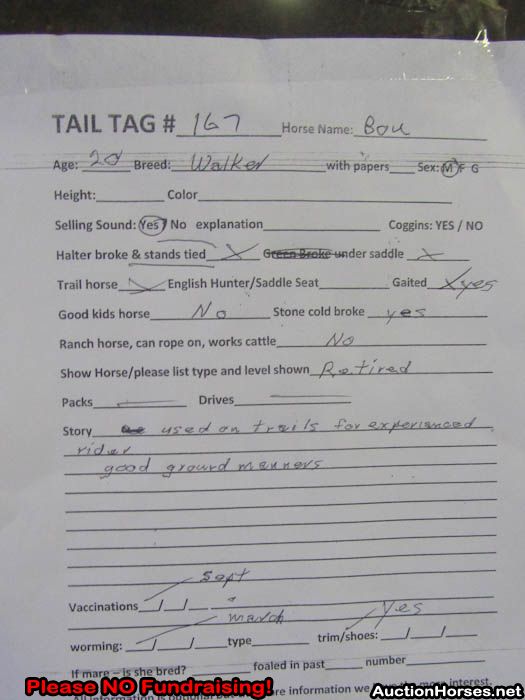 TAIL TAG # 167 Horse Name: Bou
Age: 20 Breed: Walker with papers___ Sex: M F G
Height:_______ Color_______
Selling Sound: Yes/ No explanation_______ Coggins: YES / NO
Halter broke & stands tied X Green Broke under saddle X
Trail horse X English Hunter/Saddle Seat_______ Gaited X yes
Good kids horse No Stone cold broke yes
Ranch horse, can rope on, works cattle No
Show Horse/please list type and level shown Retired
Packs_______ Drives_______
Story used on trails for experienced
rider
good ground manners
Sept
Vaccinations__/__/__
March Yes
worming:__/__/__ type_______ trim/shoes:__/__/__
If mare – is she bred?_____ foaled in past_____ number_____
Please NO Fundraising!
AuctionHorses.net